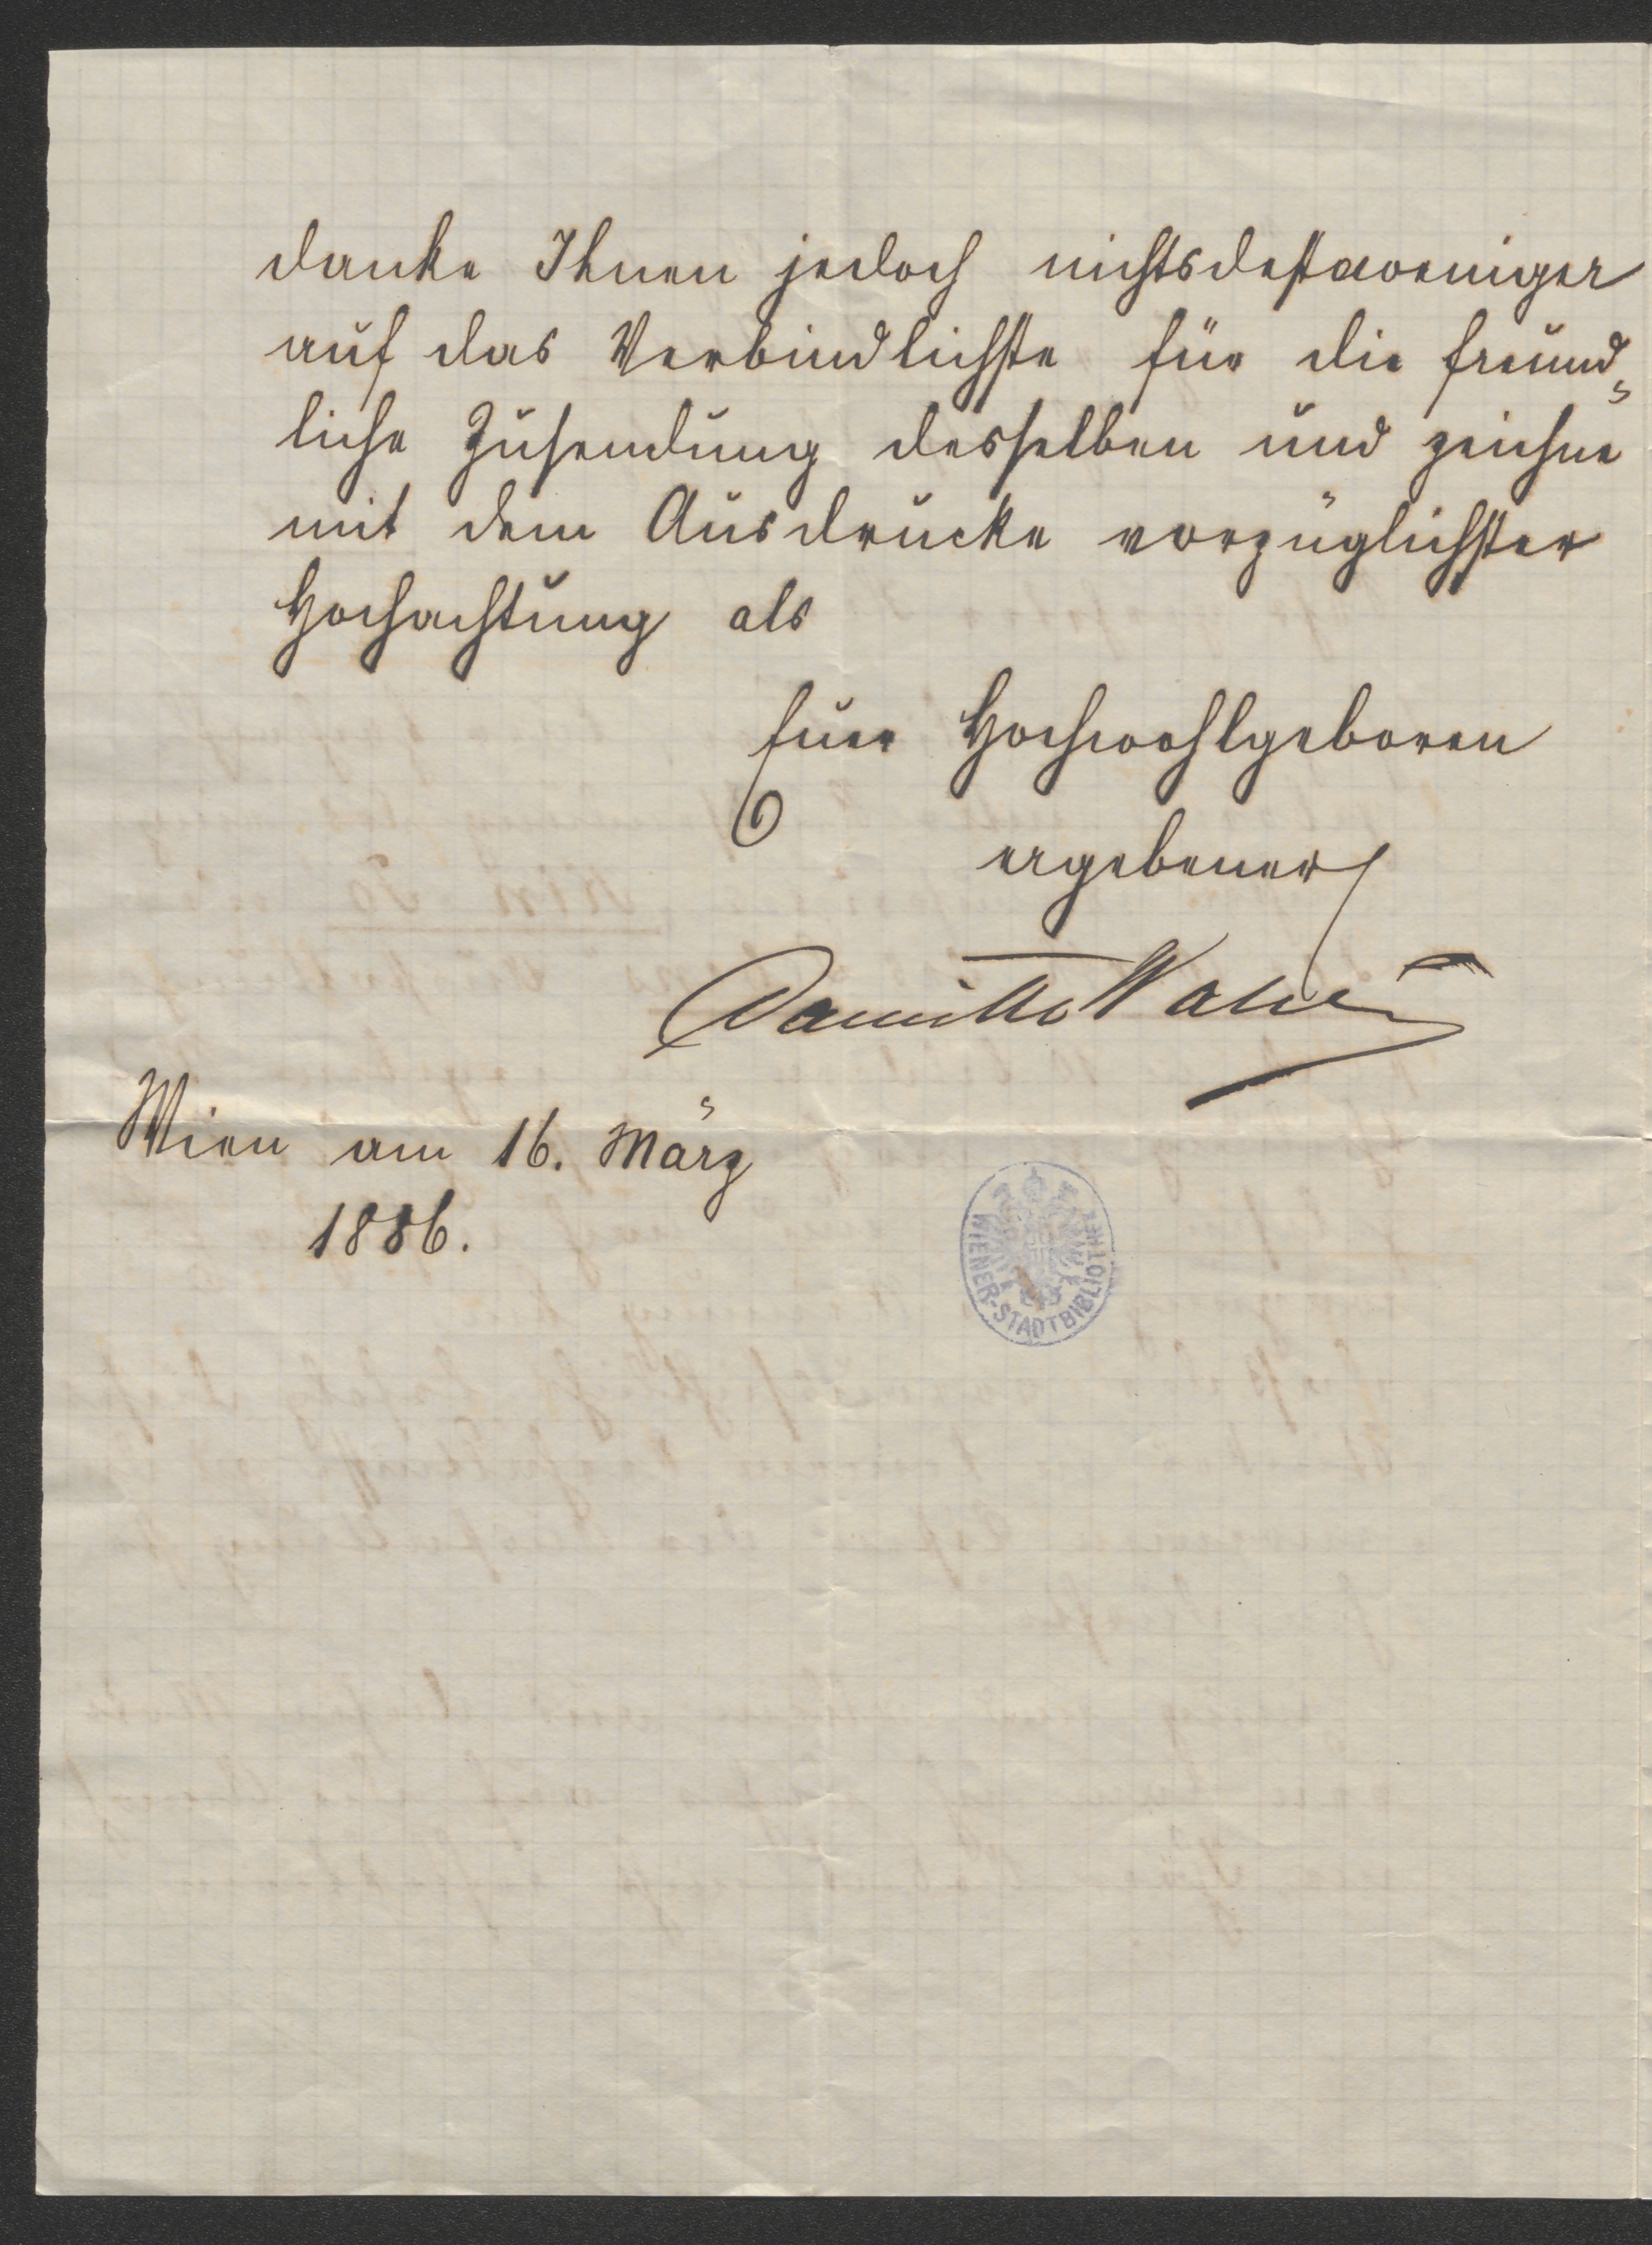 danke Ihnen jedoch nichtsdestoweniger
auf das Verbindlichste für die freund=
liche Zusendung desselben und zeichne
mit dem Ausdrucke vorzüglichster
Hochachtung als
Euer Hochwohlgeboren
ergebener
Camillo Walzel
Wien am 16. März
1886.
WIENER-STADTBIBLIOTHEK